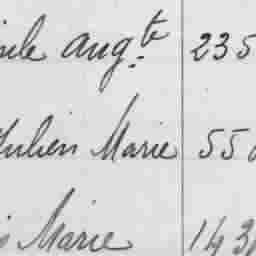 ile Aug.te 235
Julien Marie 550
s Marie 143